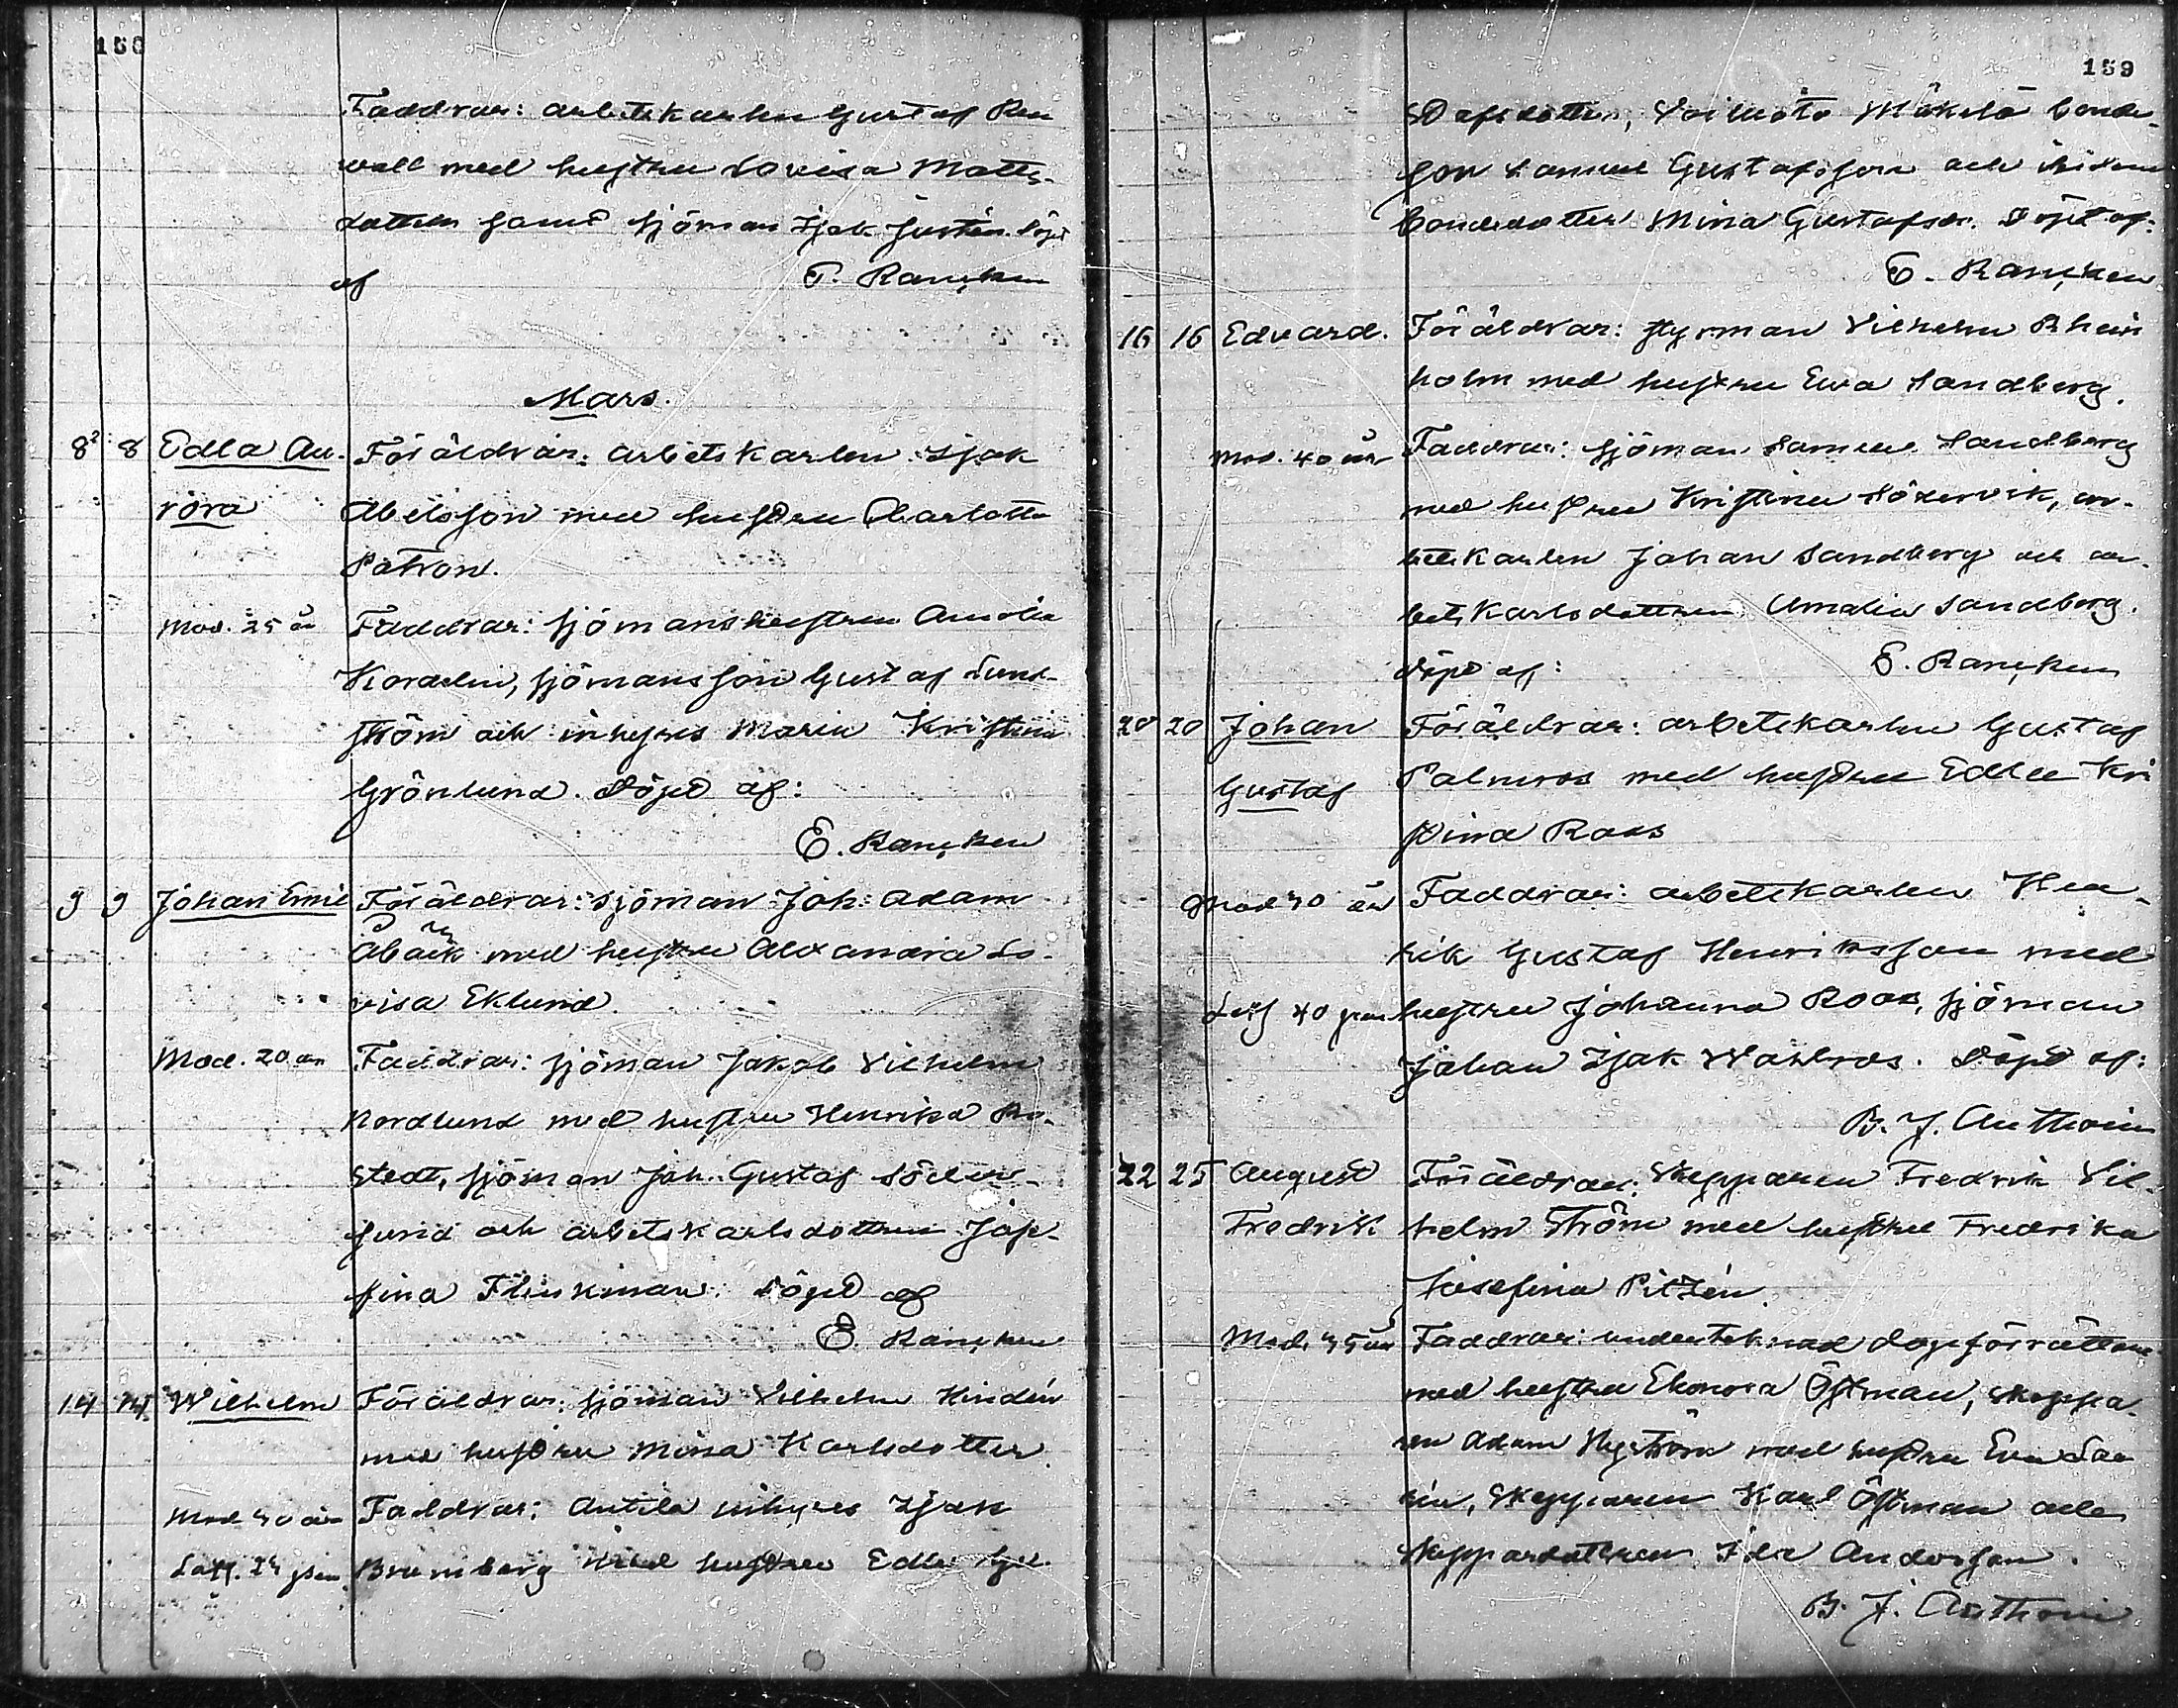 158
Faddrar: arbetskarlen Gustaf Ren
wall med hustru Lovisa Matts-
dotter samt sjöman Isak Justén. Döpt
af E. Rancken
Mars.
8 8 Edla Au- Föräldrar: arbetskarlen Isak
rora Abelsson med hustru Charlotta
Patron.
Mod. 25 år Faddrar: sjömanshustrun Amalia
sjömansson Gustaf Sund-
ström och inhyses Maria Kristina
Grönlund. Döpt af:
E. Rancken
9 9 Johan Emil Föräldrar: sjöman Joh. Adam
Åbäck med hustru Alexandra Lo-
visa Eklund.
Mod. 20 år Faddrar: sjöman Jakob Vilhelm
Nordlund med hustru Henrika Ro-
stedt, sjöman Joh. Gustaf Söder-
lund och arbetskarlsdottren Jose-
fina Flinkman. Döpt af
E. Rancken
14 14 Wilhelm Föräldrar: sjöman Vilhelm Hindén
med hustru Mina Karlsdotter.
Mod 40 år Faddrar: Antila inhyses Isak
Brumberg med hustru Edla
159
Bonde-
son Samuel Gustafsson och
Bondedotter Mina Gustafsdr. Döpt af:
E. Rancken
16 16 Edvard. Föräldrar: styrman Vilhelm Rhein
holm med hustru Eva Sandberg.
Mod. 40 år Faddrar: sjöman Samuel Sandberg
med hustru Kristina Södervik, ar-
betskarlen Johan Sandberg och ar-
betskarlsdottren Amalia Sandberg.
Döpt af: E. Rancken
20 20 Johan Föräldrar: arbetskarlen Gustaf
Gustaf Palmros med hustru Edla Kri
stina Roos
Mod 40 år Faddrar: arbetskarlen Hen-
rik Gustaf Henriksson med
hustru Johanna Roos, sjöman
Johan Isak Wahlros. Döpt af:
B. J. Anthoni
22 25 August Föräldrar: Skepparen Fredrik Vil-
Fredrik helm Ström med hustru Fredrika
Josefina Pitzén.
Mod. 35 år Faddrar: undertecknad dopförrättare
med hustru Ekonora Östman, skeppa-
ren Adam Nyström med hustru Eva
Skepparen Karl Östman och
Skeppardottren Ida Andersson.
B. J. Anthoni